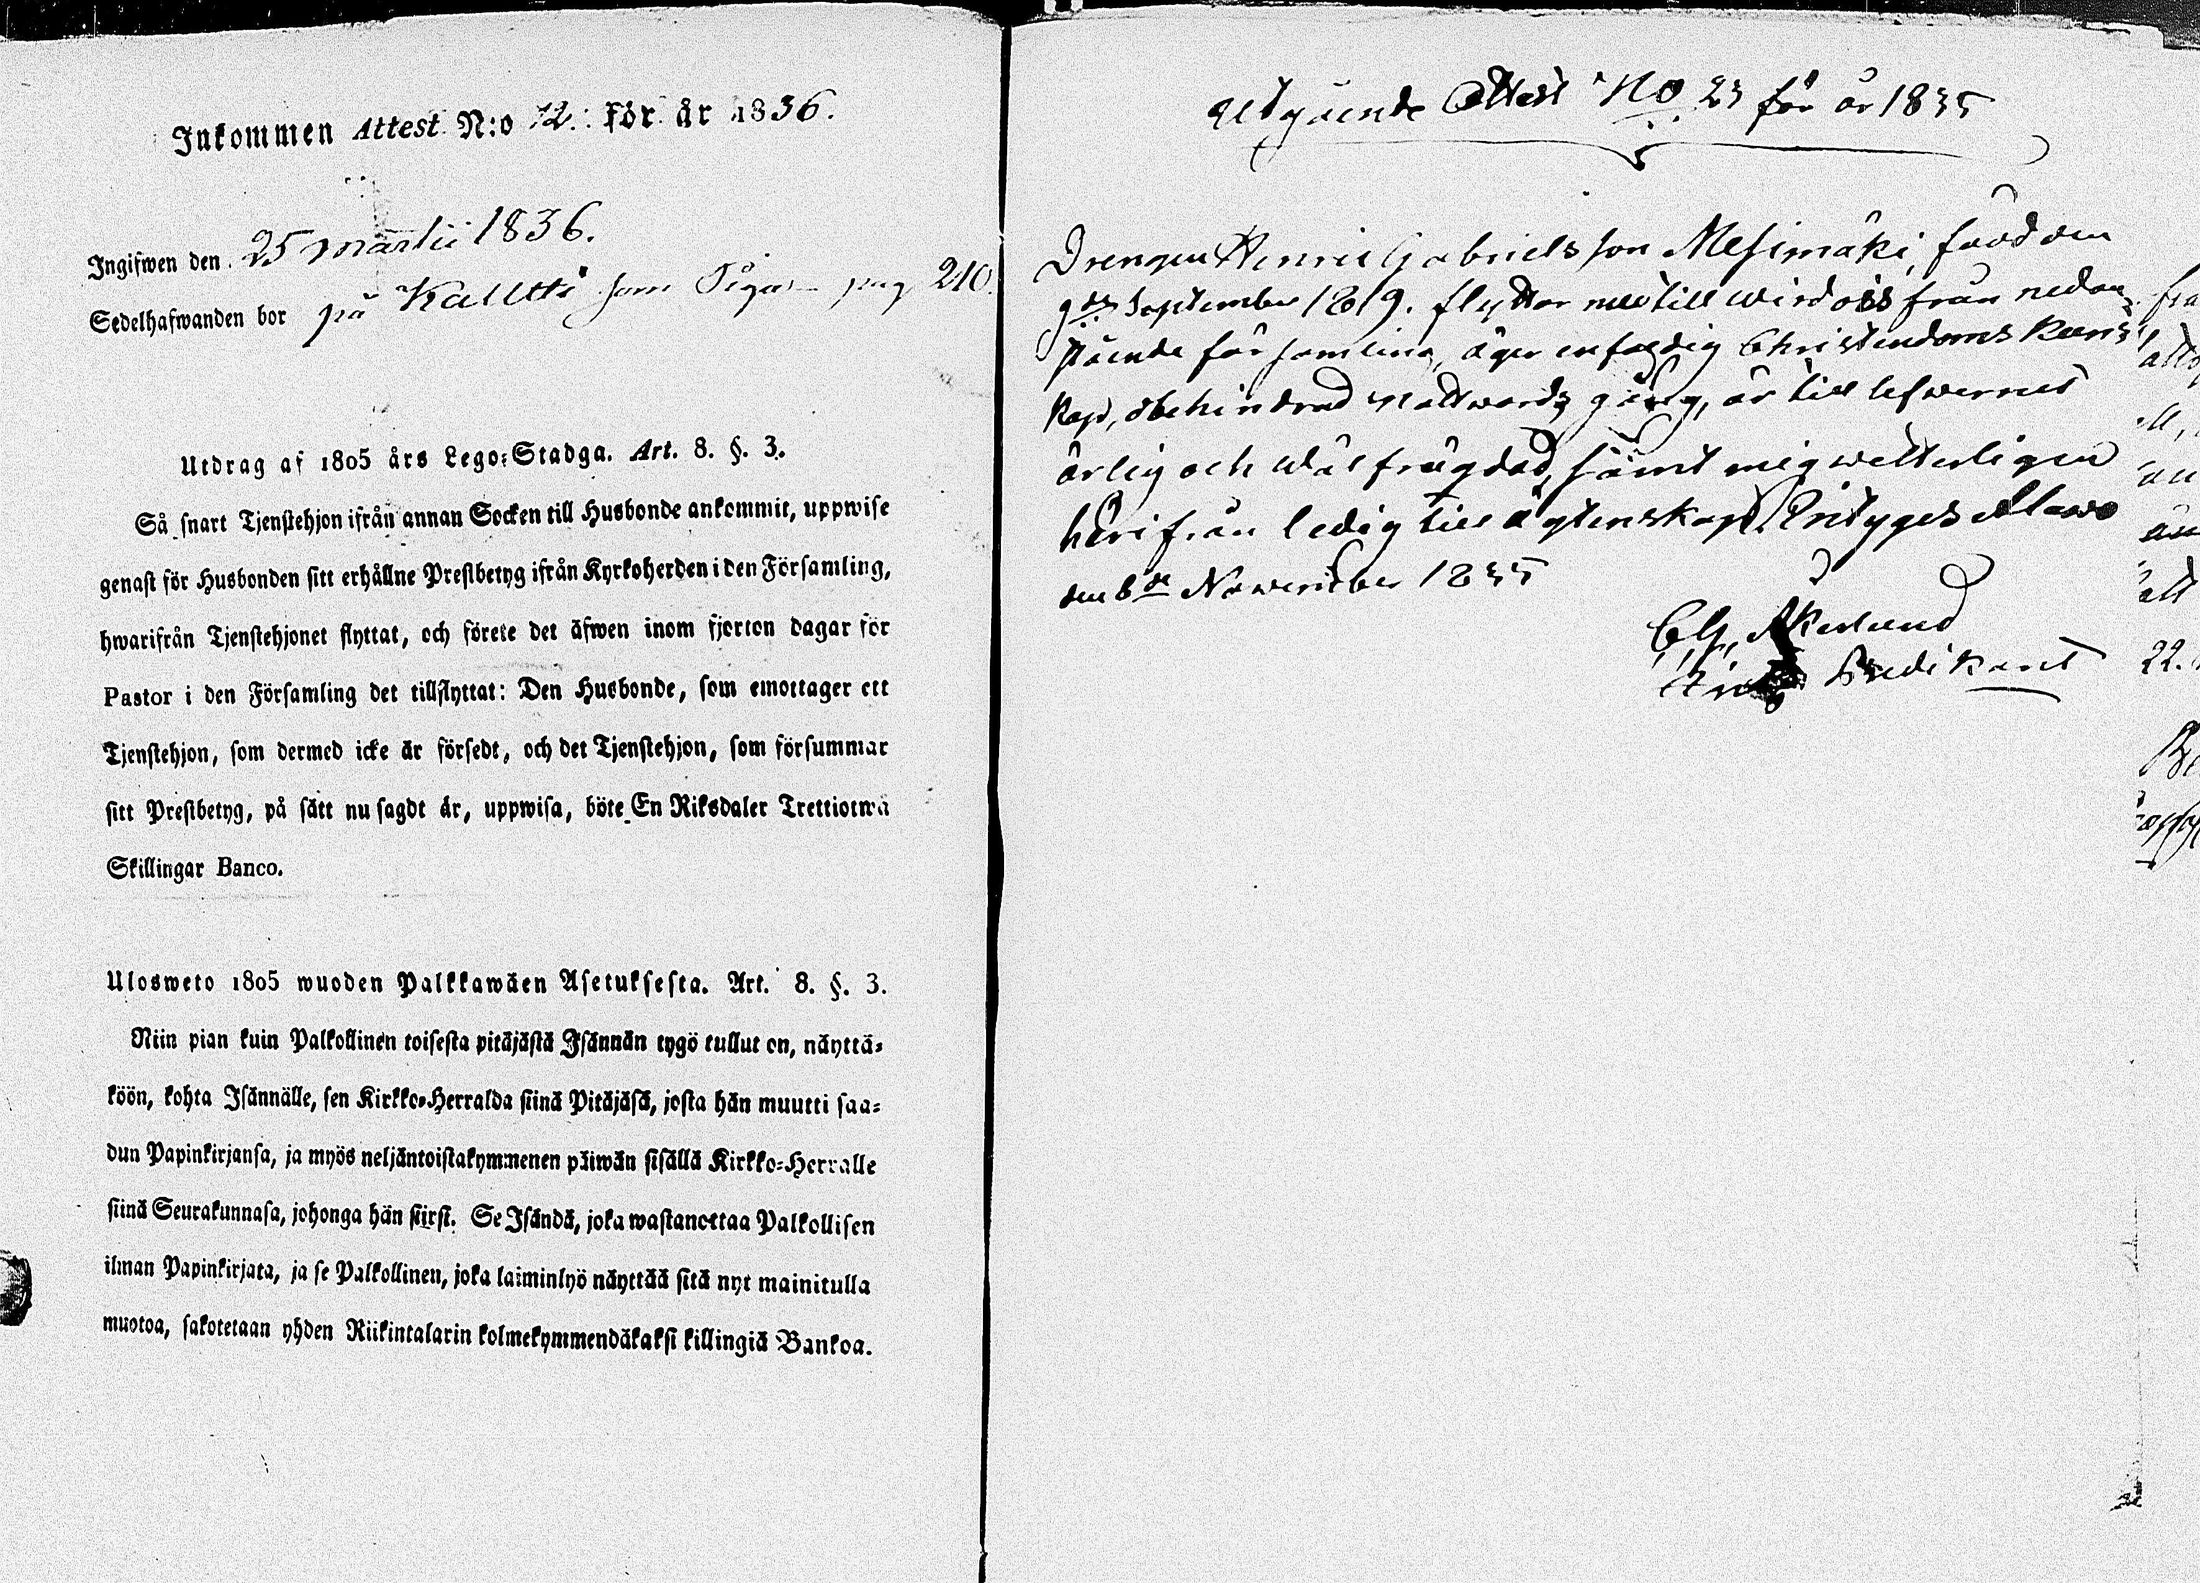 Inkommen Attest N:o 12. för år 1836.
Ingifwen den 25 martii 1836.
Sedelhafwanden bor på Kalltti som Piga pag 210.
Utdrag af 1805 års Lego-Stadga. Art. 8. §. 3.
Så snart Tjenstehjon ifrån annan Socken till Husbonde ankommit, uppwise
genast för Husbonden sitt erhållne Prestbetyg ifrån Kyrkoherden i den Församling,
hwarifrån Tjenstehjonet flyttat, och förete det äfwen inom fjorton dagar för
Pastor i den Församling det tillflyttat: Den Husbonde, som emottager ett
Tjenstehjon, som dermed icke är försedt, och det Tjenstehjon, som försummar
sitt Prestbetyg, på sätt nu sagdt är, uppwisa, böte En Riksdaler Trettiotwå
Skillingar Banco.
Ulosweto 1805 wuoden Palkkawäen Asetuksesta. Art. 8. §. 3.
Niin pian kuin Palkollinen toisesta pitäjästä Isännän tygö tullut on, näyttä-
köön, kohta Isännälle, sen Kirkko-Herralda siinä Pitäjäsä, josta hän muutti saa-
dun Papinkirjansa, ja myös neljäntoistakymmenen päiwän sisällä Kirkko-Herralle
siinä Seurakunnasa, johonga hän siirsi. Se Isändä, joka wastanottaa Palkollisen
ilman Papinkirjata, ja se Palkollinen, joka laiminlyö näyttää sitä nyt mainitulla
muotoa, sakotetaan yhden Riikintalarin kolmekymmendäkaksi killingiä Bankoa.
Utgående Attest No 23 för år 1835
Drengen Henric Gabrielsson Mesimäki, född den
9de September 1819. flyttar nu till Wirdois från nedan-
stående församling, äger enfaldig Christendoms kuns-
kap, obehindrad Nattwards gång, är till lefwernet
ärlig och wäl frägdad, samt mig wetterligen
härifrån ledig till ägtenskap. Bityges Alawo
den 6de November 1835
C. G. Åkerlund
Predikant
22.